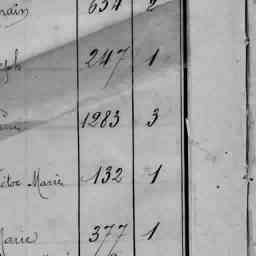 634 2
247 1
1283 3
Marie 132 1
Marie 377 1